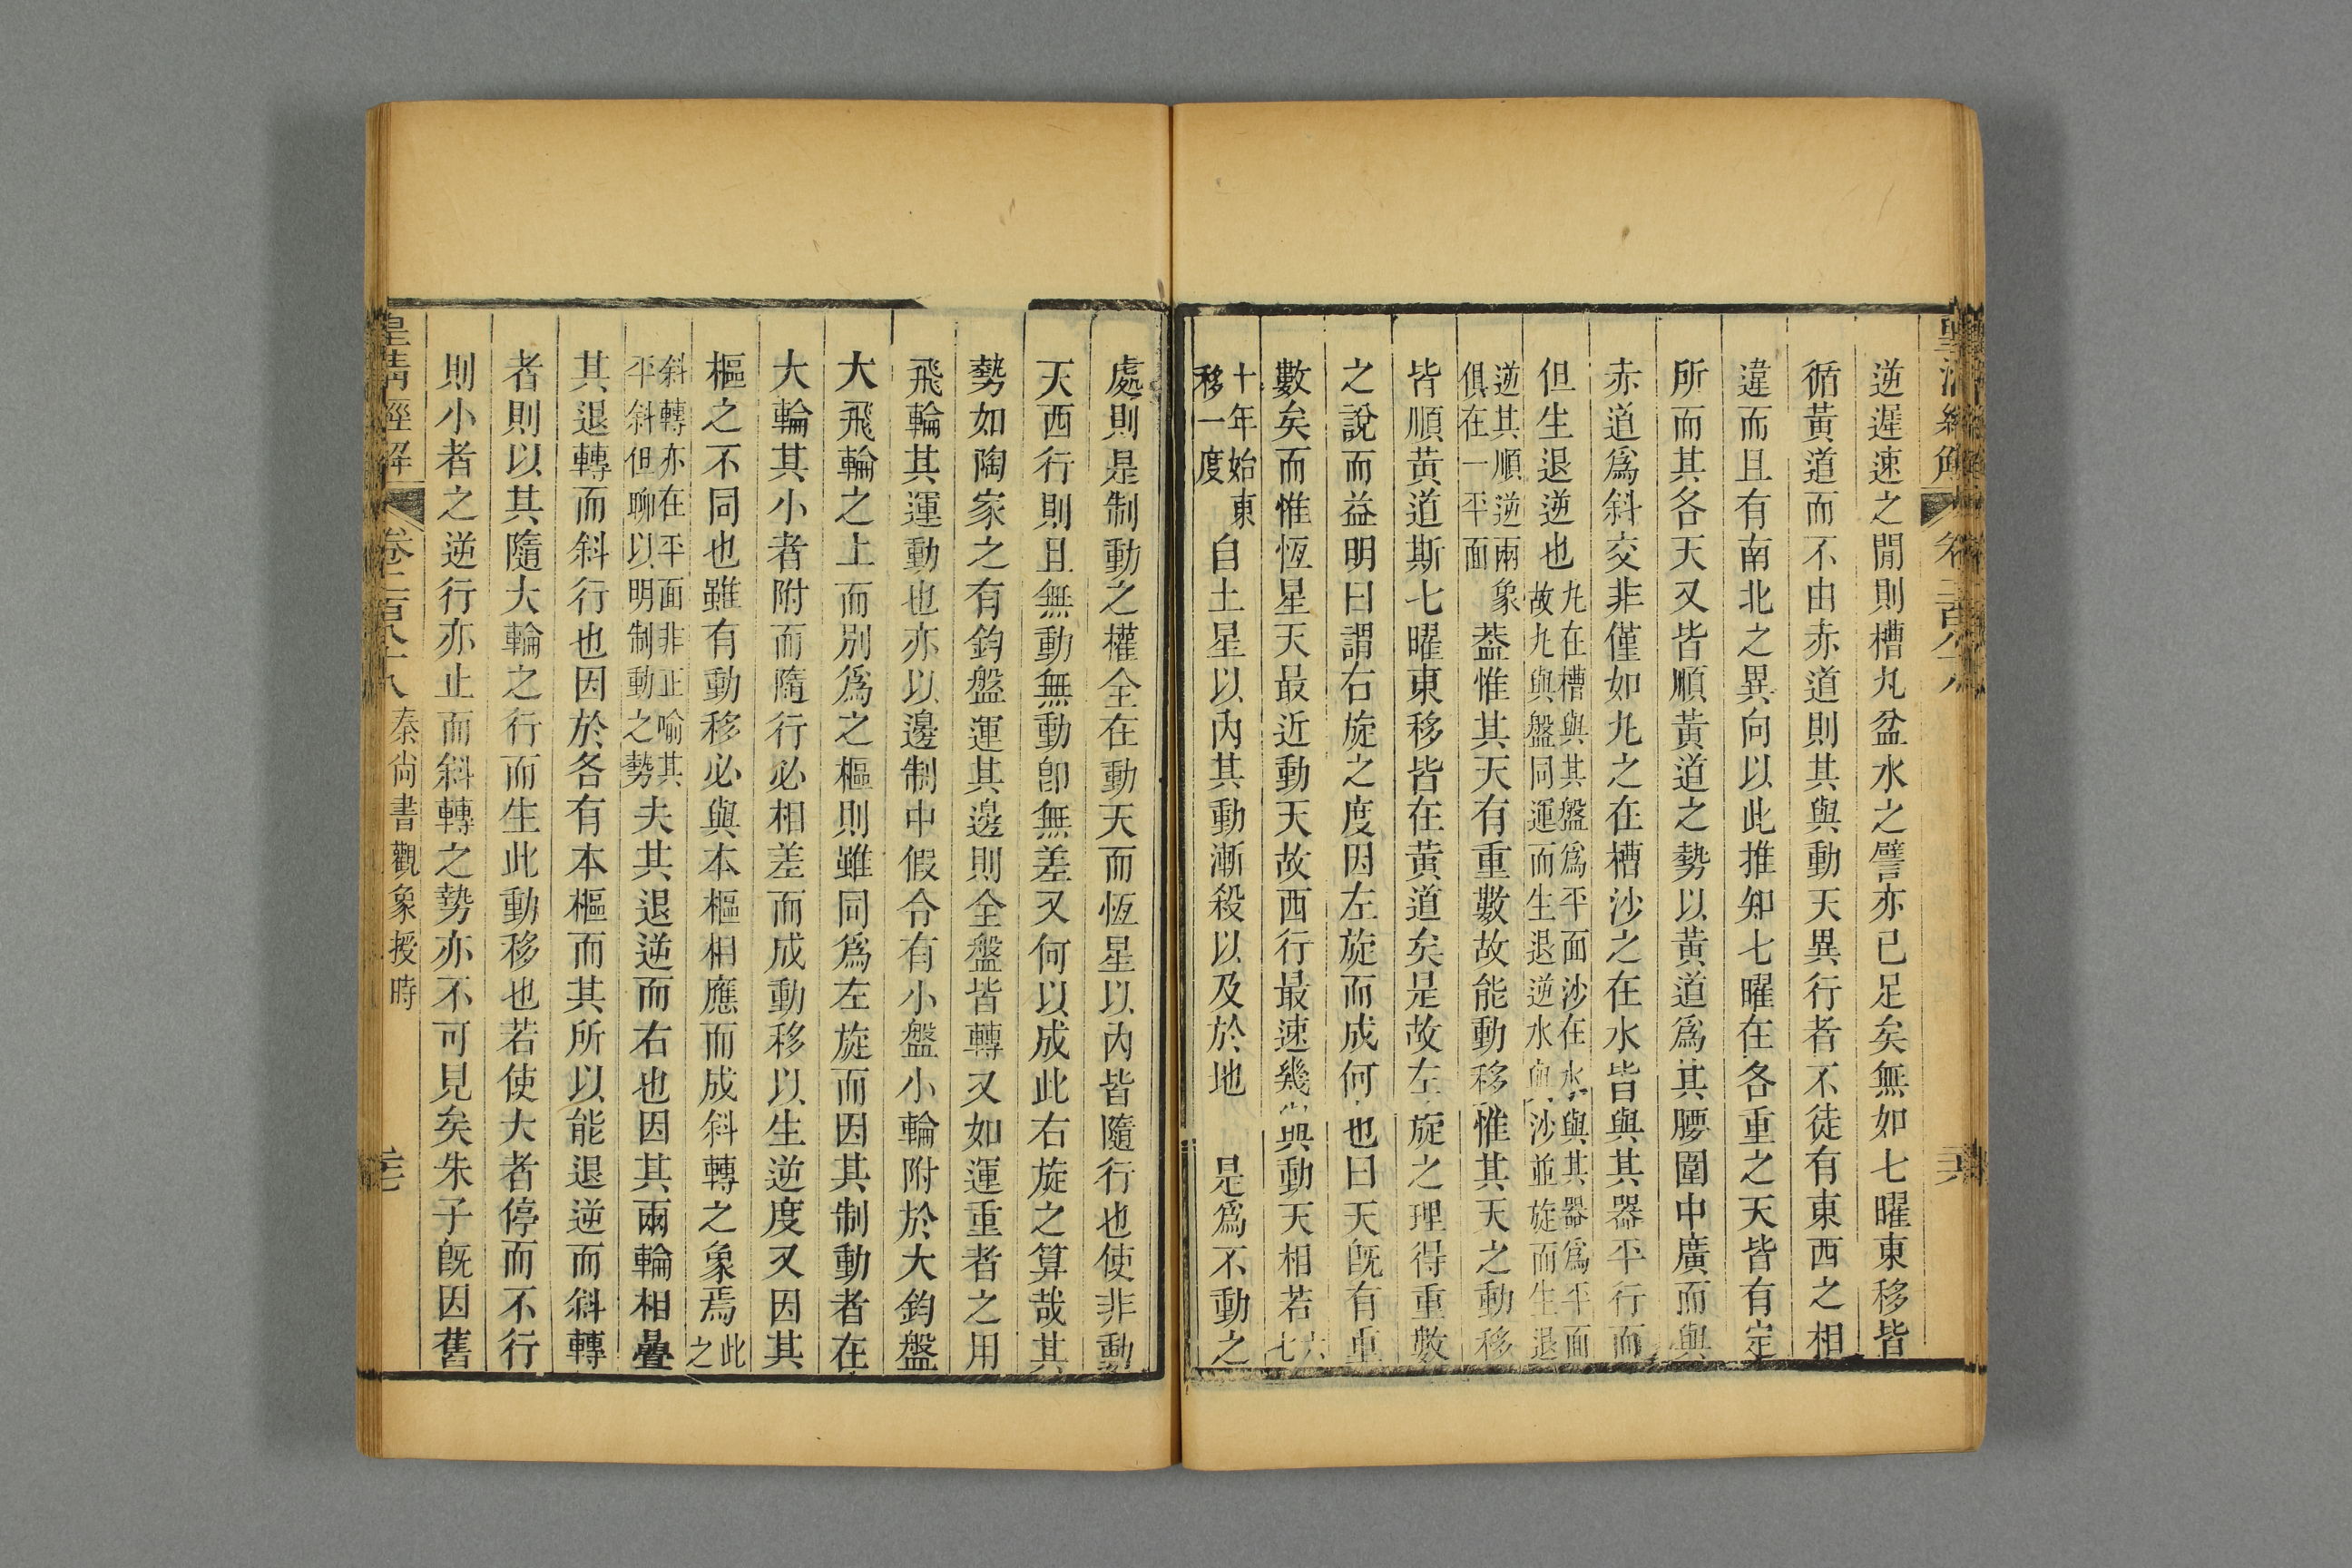 逆遲速之閒則槽丸盆水之譬亦已足矣無如七曜東移皆
循黃道而不由赤道則其與動天異行者不徒有東西之相
違而且有南北之異向以此推知七曜在各重之天皆有定
所而其各天又皆順黃道之勢以黃道爲其腰圍中廣而與
赤道爲斜交非僅如丸之在槽沙之在水皆與其器平行而
但生退逆也丸在槽與其盤爲平面沙在水與其器爲平面
故丸與盤同運而生退逆水與沙並旋而生退
逆其順逆兩象
俱在一平面
葢惟其天有重數故能動移惟其天之動移
皆順黃道斯七曜東移皆在黃道矣是故左旋之理得重數
之說而益明曰謂右旋之度因左旋而成何也曰天旣有重
數矣而惟恆星天最近動天故西行最速幾與動天相若六
七
十年始東
移一度
自土星以內其動漸殺以及於地 是爲不動之
處則是制動之權全在動天而恆星以內皆隨行也使非動
天西行則且無動無動卽無差又何以成此右旋之算哉其
勢如陶家之有鈞盤運其邊則全盤皆轉又如運重者之用
飛輪其運動也亦以邊制中假令有小盤小輪附於大鈞盤
大飛輪之上而別爲之樞則雖同爲左旋而因其制動者在
大輪其小者附而隨行必相差而成動移以生逆度又因其
樞之不同也雖有動移必與本樞相應而成斜轉之象焉此
之
斜轉亦在平面非正喻其
平斜但聊以明制動之勢
夫其退逆而右也因其兩輪相疊
其退轉而斜行也因於各有本樞而其所以能退逆而斜轉
者則以其隨大輪之行而生此動移也若使大者停而不行
則小者之逆行亦止而斜轉之勢亦不可見矣朱子旣因舊
皇清經解 卷二百八十八 秦尚書觀象授時